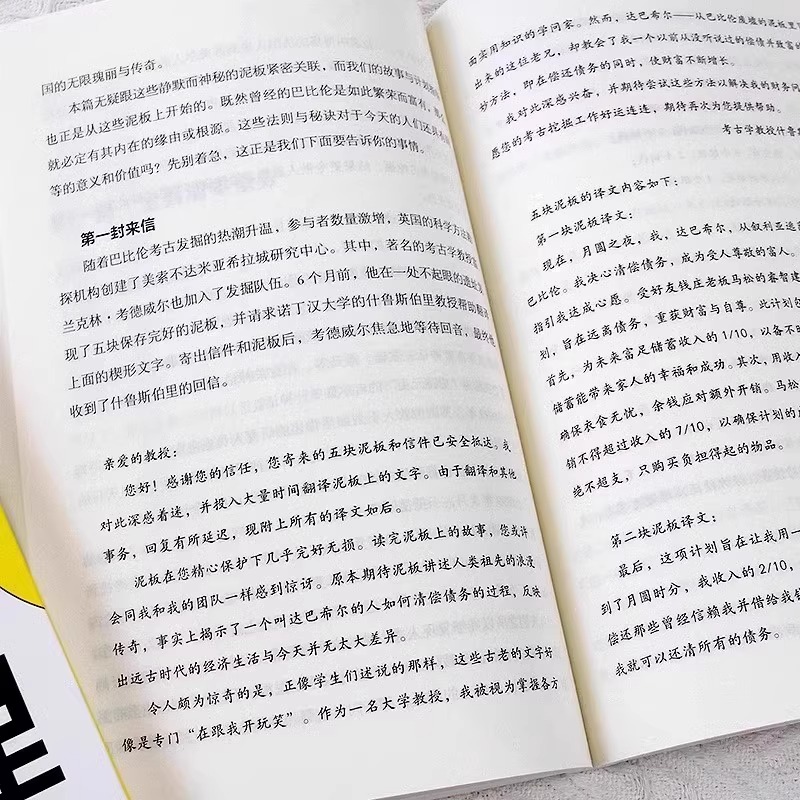 国的无限瑰丽与传奇。
本篇无疑跟这些静默而神秘的泥板紧密关联，而我们的故事与计划
也正是从这些泥板上开始的。既然曾经的巴比伦是如此繁荣而富有，那么
就必定有其内在的缘由或根源。这些法则与秘诀对于今天的人们还具有
等的意义和价值吗？先别着急，这正是我们下面要告诉你的事情。
第一封来信
随着巴比伦考古发掘的热潮升温，参与者数量激增，英国的科学方
探机构创建了美索不达米亚希拉城研究中心。其中，著名的考古学教授
兰克林·考德威尔也加入了发掘队伍。6个月前，他在一处不起眼的遗址
现了五块保存完好的泥板，并请求诺丁汉大学的什鲁斯伯里教授帮助翻译
上面的楔形文字。寄出信件和泥板后，考德威尔焦急地等待回音，最终他
收到了什鲁斯伯里的回信。
亲爱的教授：
您好！感谢您的信任，您寄来的五块泥板和信件已安全抵达。我
对此深感着迷，并投入大量时间翻译泥板上的文字。由于翻译和其他
事务，回复有所延迟，现附上所有的译文如后。
泥板在您精心保护下几乎完好无损。读完泥板上的故事，您或许
会同我和我的团队一样感到惊讶。原本期待泥板讲述人类祖先的浪漫
传奇，事实上揭示了一个叫达巴希尔的人如何清偿债务的过程，反映
出远古时代的经济生活与今天并无太大差异。
令人颇为惊奇的是，正像学生们述说的那样，这些古老的文字好
像是专门“在跟我开玩笑”。作为一名大学教授，我被视为掌握各方
面实用知识的学问家。然而，达巴希尔——从巴比伦废墟的泥板里
出来的这位老兄，却教会了我一个以前从没听说过的偿债并致富的
妙方法，即在偿还债务的同时，使财富不断增长。
我对此深感兴奋，并期待尝试这些方法以解决我的财务问
愿您的考古挖掘工作好运连连，期待再次为您提供帮助。
考古学教授什鲁斯
五块泥板的译文内容如下：
第一块泥板译文：
现在，月圆之夜，我，达巴希尔，从叙利亚逃
巴比伦。我决心清偿债务，成为受人尊敬的富人。
指引我达成心愿。受好友钱庄老板马松的睿智建
划，旨在远离债务，重获财富与自尊。此计划
首先，为未来富足储蓄收入的 1/10，以备不
储蓄能带来家人的幸福和成功。其次，用收入
确保衣食无忧，余钱应对额外开销。马松
销不得超过收入的 7/10，以确保计划的
绝不超支，只购买负担得起的物品。
第二块泥板译文：
最后，这项计划旨在让我用一
到了月圆时分，我收入的 2/10，
偿还那些曾经信赖我并借给我钱
我就可以还清所有的债务。